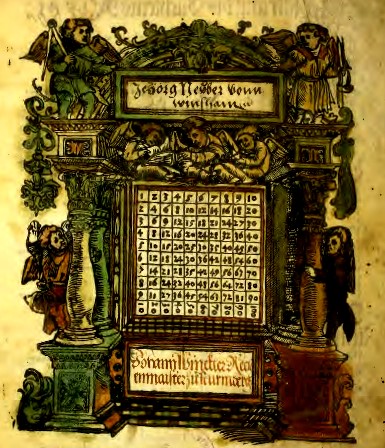 Jeorg Nebber vonn
winshaim
1 2 3 4 5 6 7 8 9 10
2 4 6 8 10 12 14 16 18 20
3 6 9 12 15 18 21 24 27 30
4 8 12 16 20 24 28 32 36 40
5 10 15 20 25 30 35 40 45 50
6 12 18 24 30 36 42 48 54 60
7 14 21 28 35 42 49 56 63 70
8 16 24 32 40 48 56 64 72 80
9 18 27 36 45 54 63 72 81 90
Rech
enmaister zu Nurmberg